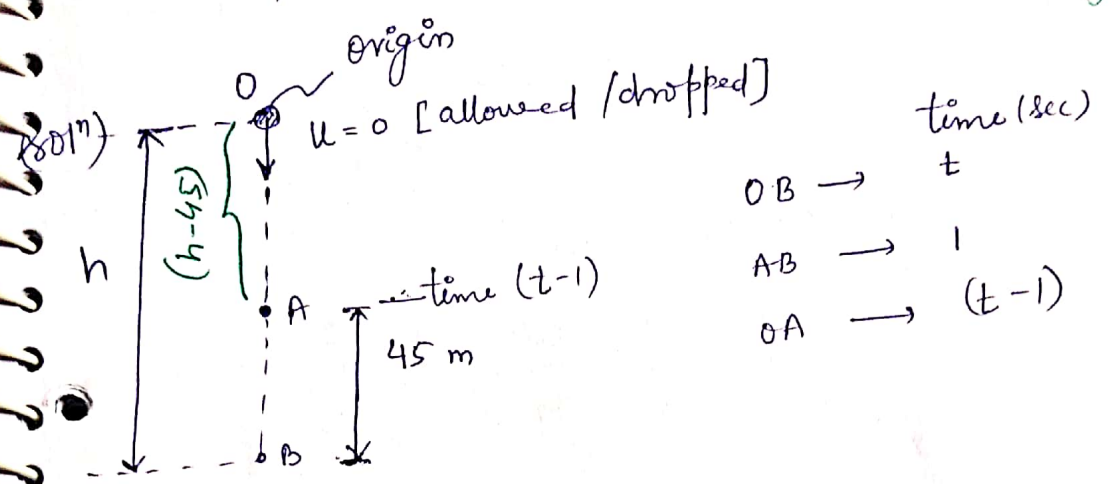 origin
O
u = 0 [allowed /dropped]
time (sec)
Sol")
(h-45)
OB → t
h
AB → 1
A
time (t-1)
OA → (t-1)
45 m
B